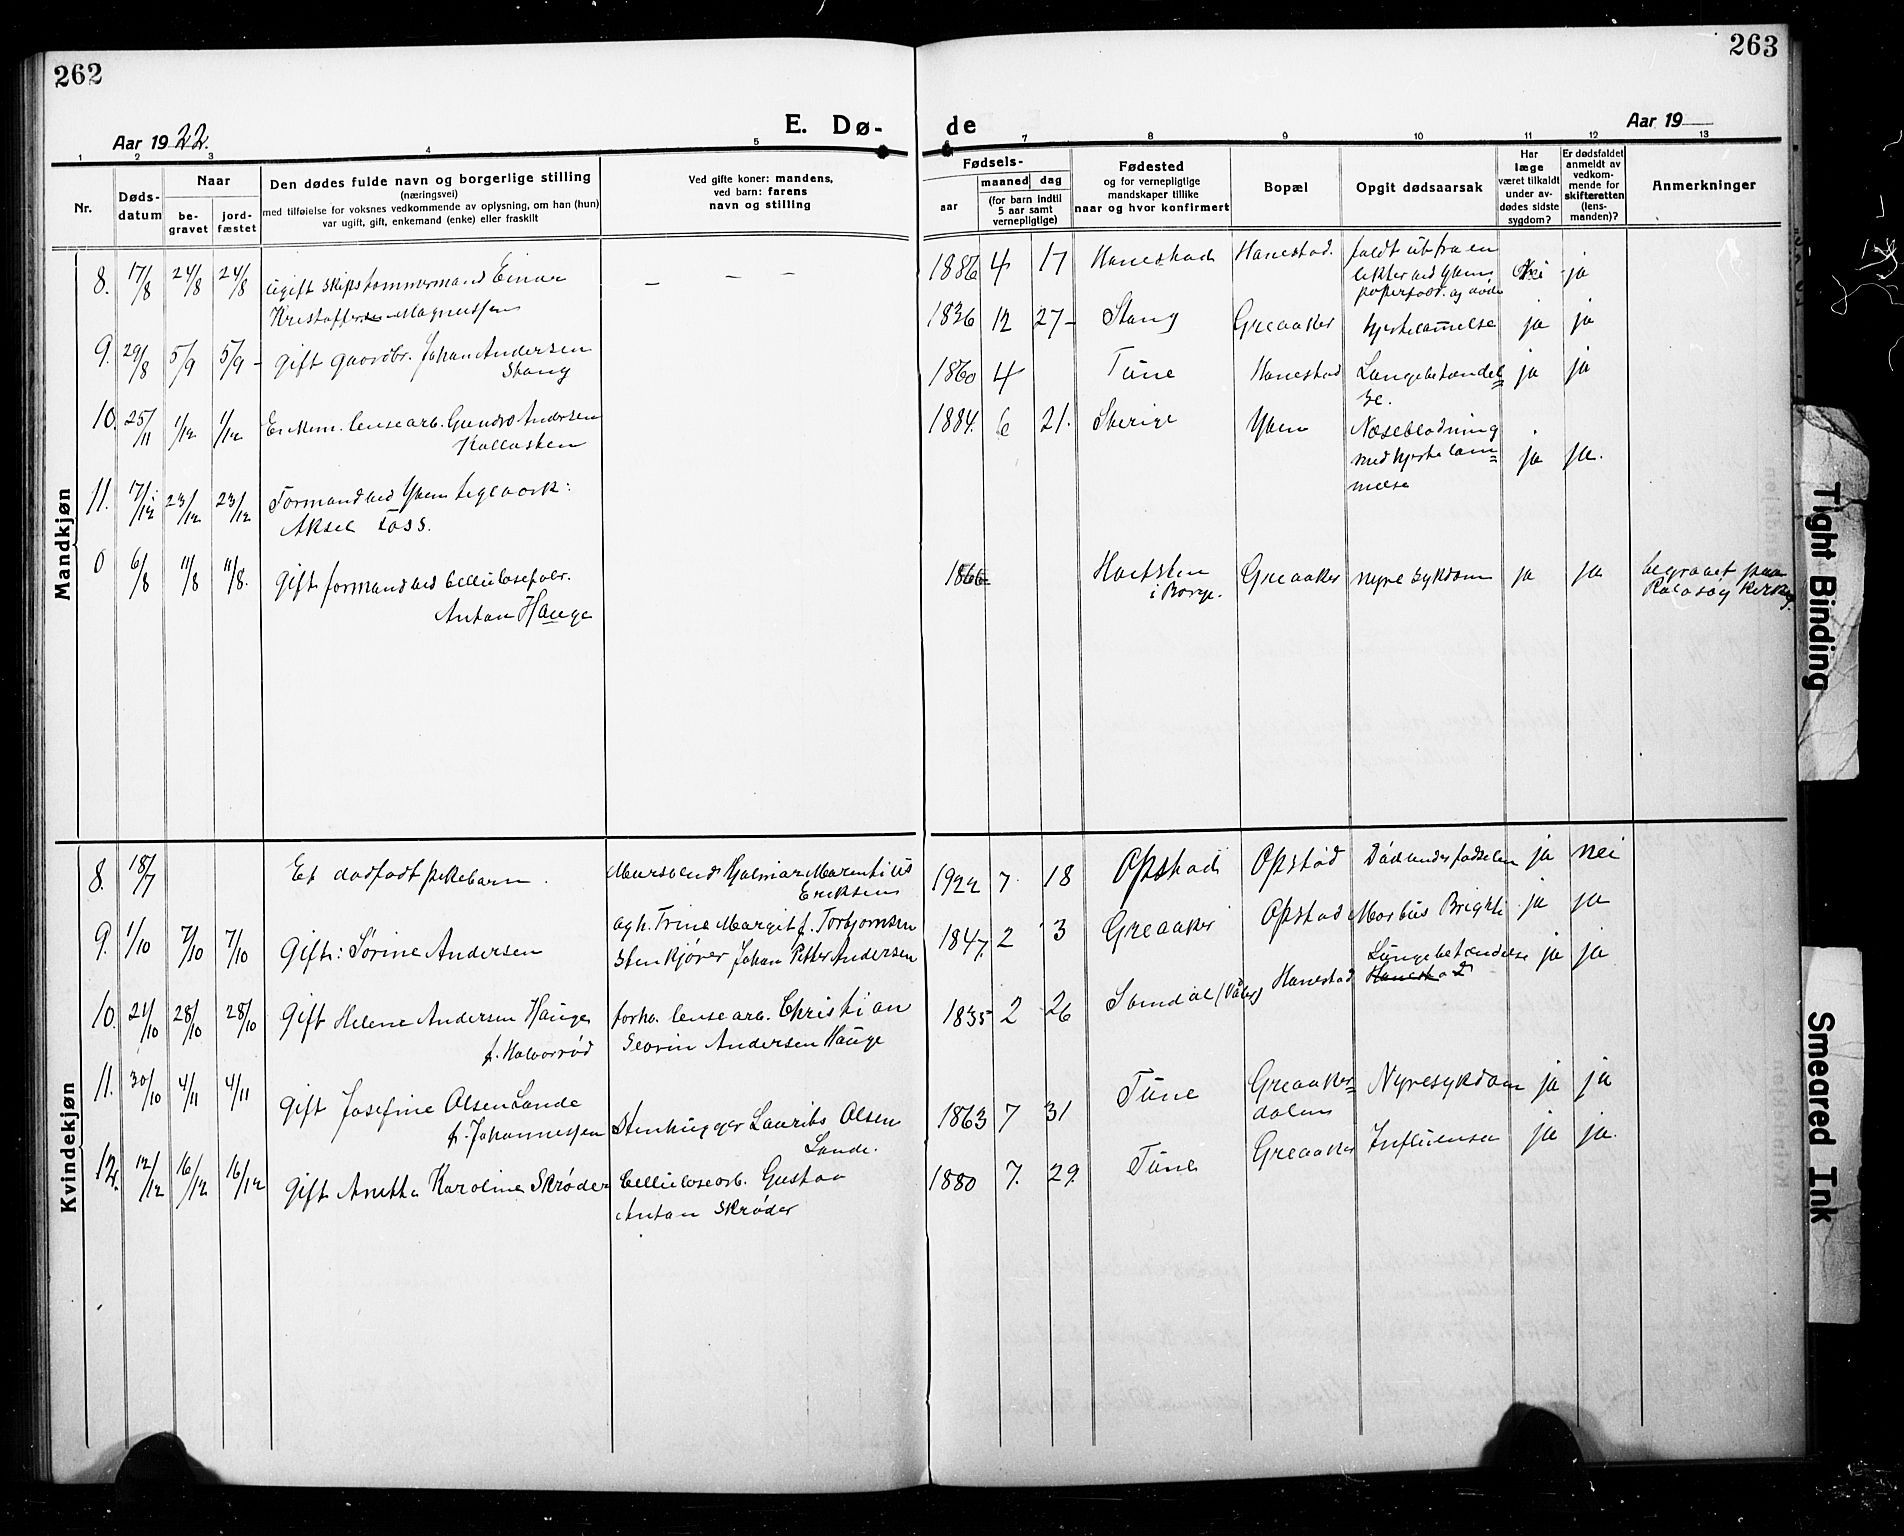 262
263
E. Dø-
de
Aar 1922.
Aar 19
1 2 3 4 5 6 7 8 9 10 11 12 13
Nr.
Døds-
datum
Naar
be-
gravet
jord-
fæstet
Den dødes fulde navn og borgerlige stilling
(næringsvei)
med tilføielse for voksnes vedkommende av oplysning, om han (hun)
var ugift, gift, enkemand (enke) eller fraskilt
Ved gifte koner: mandens,
ved barn: farens
navn og stilling
Fødsels-
aar
maaned
dag
(for barn indtil
5 aar samt
vernepligtige)
Fødested
og for vernepligtige
mandskaper tillike
naar og hvor konfirmert
Bopæl
Opgit dødsaarsak
Har
læge
været tilkaldt
under av-
dødes sidste
sygdom?
Er dødsfaldet
anmeldt av
vedkom-
mende for
skifteretten
(lens-
manden)?
Anmerkninger
Mandkjøn
8. 17/8 24/8 24/8 ugift skipstømmermand Einar
Kristoffersen Magnussen
— — —
1886 4 17 Hanestad Hanestad. faldt ut fra en
lekter ved Yvens
papirfabr. og døde
nei ja
9. 29/8 5/9 5/9 – gift gaardbr. Johan Andersen
Stang
1836 12 27 – Stang Greaaker hjertelammelse ja ja
10. 25/11 1/12 1/12 Enkem. lensearb. Gundro Andersen
Kallasten
1860 4 Tune Hanestad Lungebetændel=
se.
ja ja
11. 17/12 23/12 23/12 Formand ved Yven teglverk:
Aksel Foss.
1884. 6 21. Sverige Yven Næseblødning
med hjertelam=
melse
ja ja.
0 6/8 11/8 11/8. gift formand ved cellulosefabr.
Anton Hauge
1866 Hafsten
i Borge.
Greaaker nyresykdom ja ja begravet paa
Rolvsøy kirkeg.
Kvindekjøn
8. 18/7 Et dødfødt pikebarn.
Mursvend Hjalmar Marentius
Eriksen
og h. Trine Margit f. Torbjørnsen
1922 7 18 Opstad Opstad Død under fødselen ja nei
9. 1/10 7/10 7/10 Gift: Sørine Andersen
Stenkjører Johan Petter Andersen
1847. 2 3 Greaaker Opstad Morbus Brighti ja ja
10. 21/10 28/10 28/10 Gift Helene Andersen Hauge
f. Halvorsrød
forhv. lensearb. Christian
Severin Andersen Hauge
1835 2 26 Hanestad Lungebetændelse
Hanestad
ja ja
11. 30/10 4/11 4/11 Gift Josefine Olsen Lande
f. Johannessen
Stenhugger Laurits Olsen
Lande.
1863 7 31 Tune Greaaker=
dalen
Nyresykdom ja ja
12. 12/12 16/12 16/12 Gift Anetta Karoline Skrøder
Cellulosearb. Gustav
Anton Skrøder
1880 7. 29. Tune Greaaker Influensa ja ja.
Tight Binding
Smeared Ink